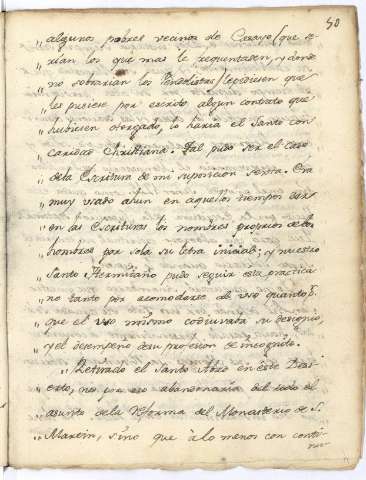 50
„ algunos pobres vecinos de Casayo (que se-
„ rian los que mas le frequentasen, y donde
„ no sobrarian los Pendolistas) le pidiesen que
„ les pusiese por escrito algun contrato que
„ hubiesen otorgado, lo haria el Santo con
„ caridad Christiana. Tal pudo ser el caso
„ dela Escritura de mi suposicion sexta. Era
„ muy usado aun en aquellos tiempos
„ en las Escrituras los nombres proprios de los
„ hombres por sola su letra inicial; y nuestro
„ Santo Hermitaño pudo seguir esta practica
„ no tanto por acomodarse al uso quanto p.r
„ que el uso mismo coadiuvara su designio,
„ y el desempeño desu profesion de incognito.
„ Retirado el Santo Abad en este Desi-
„ erto, no por eso abandonaria del todo el
„ asunto dela Reforma del Monasterio de S.
„ Martin, sino que à lo menos con conti-